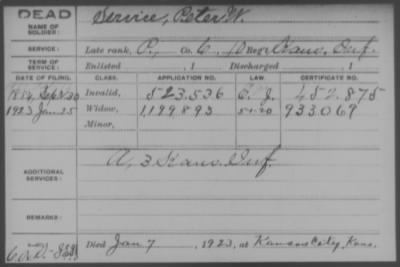 DEAD
NAME OF SOLDIER: Service, Peter W.
SERVICE: Late rank, P., Co. C, 10 Reg't Kans. Inf.
TERM OF SERVICE: Enlisted , 1 Discharged , 1
DATE OF FILING. CLASS. APPLICATION NO. LAW. CERTIFICATE NO.
1884, Sept 30 Invalid, 523.536 452.875
1923 Jan 25 Widow, 1,199,893 933.069
Minor,
ADDITIONAL SERVICES: A, 3 Kans. Inf.
REMARKS:
Died Jan 7, 1923, at Kansas City, Kans.